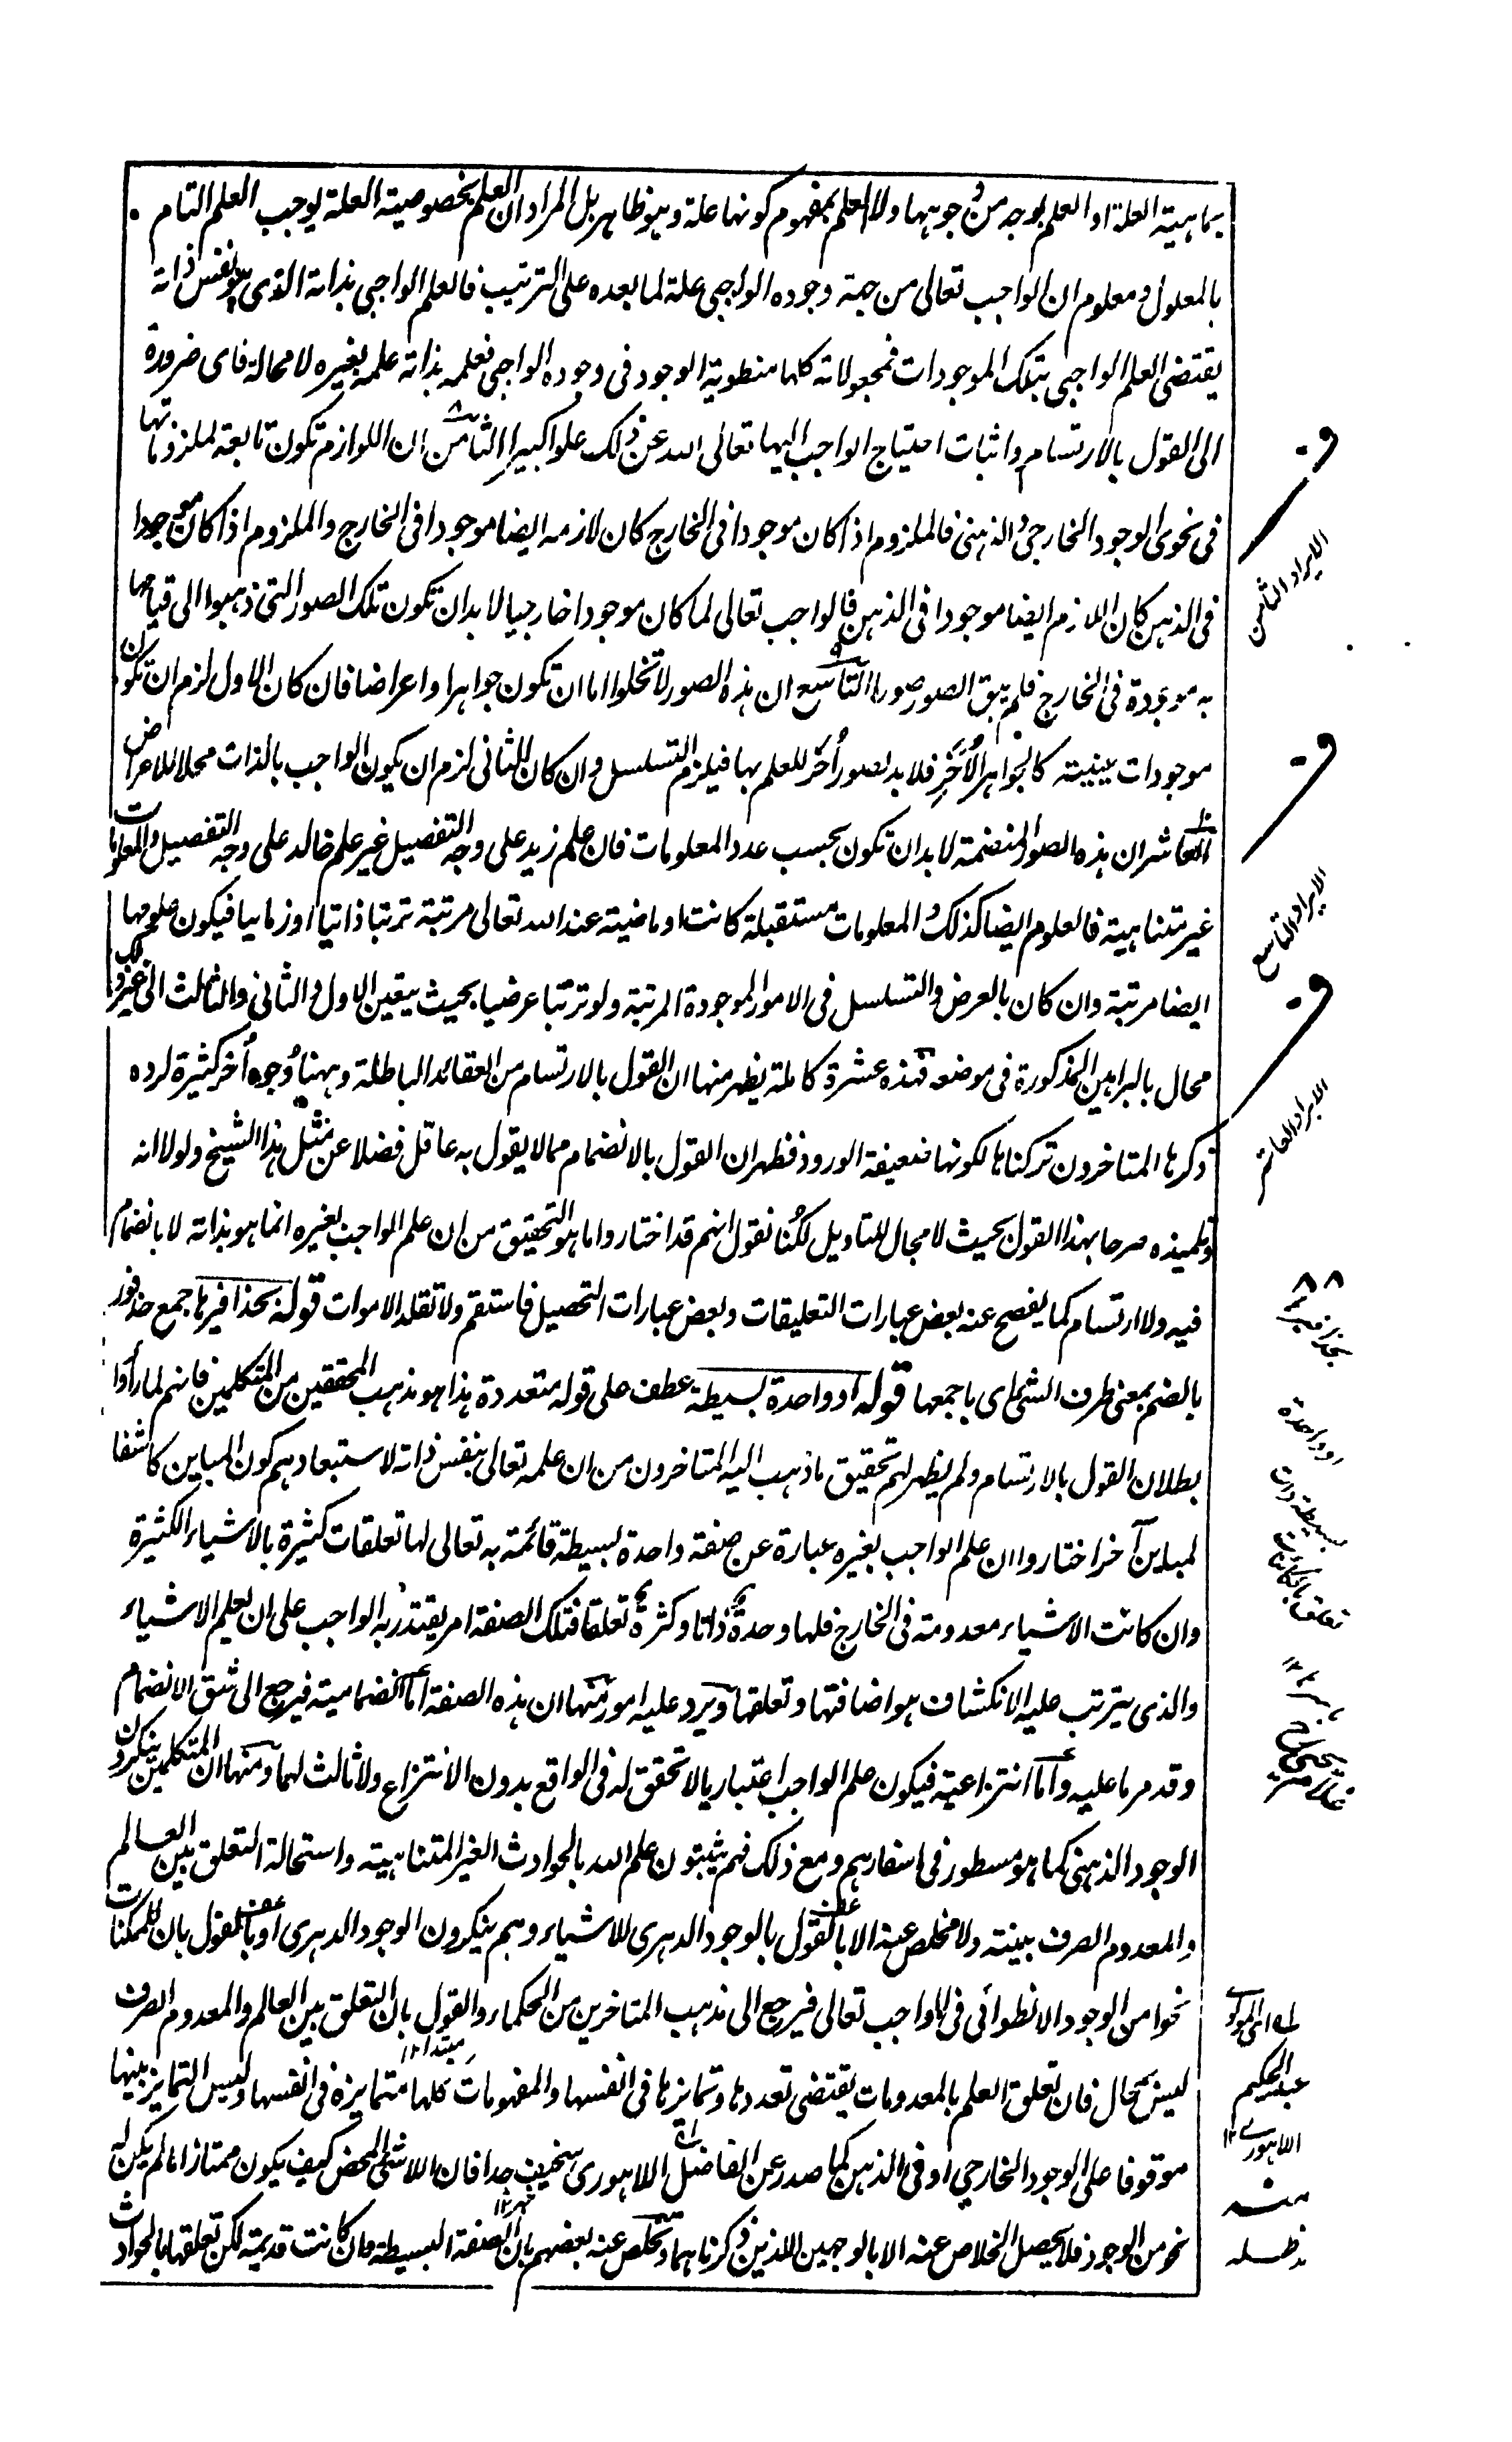 بماهية العلة او العلم بوجه من وجوهها ولا العلم بمفهوم كونها علة وهو ظاهر بل المراد ان العلم بخصوصية العلة يوجب العلم التام
بالمعلول ومعلوم ان الواجب تعالى من جهة وجوده الواجبي علة لما بعده على الترتيب فالعلم الواجبي بذاته الذى هو نفس ذاته
يقتضى العلم الواجبي بتلك الموجودات فمجعولاته كلها منطوية الوجود فى وجوده الواجبي فعلمه بذاته علمه بغيره لا محالة فاى ضرورة
الى القول بالارتسام واثبات احتياج الواجب اليها تعالى الله عن ذلك علوا كبيرا الثامن ان اللوازم تكون تابعة لملزوماتها
فى نحوى الوجود الخارجى والذهنى فالملزوم اذا كان موجودا فى الخارج كان لازمه ايضا موجودا فى الخارج والملزوم اذا كان موجودا
فى الذهن كان اللازم ايضا موجودا فى الذهن فالواجب تعالى لما كان موجودا خارجيا لا بد ان تكون تلك الصور التى ذهبوا الى قيامها
به موجودة فى الخارج فلم يبق الصور صورا التاسع ان هذه الصور لا تخلوا اما ان تكون جواهر او اعراضا فان كان الاول لزم ان تكون
موجودات عينية كالجواهر الأخر فلا بد لصور أخر للعلم بها فيلزم التسلسل وان كان الثانى لزم ان يكون الواجب بالذات محلا للاعراض
العاشر ان هذه الصور المنضمة لا بد ان تكون بحسب عدد المعلومات فان علم زيد على وجه التفصيل غير علم خالد على وجه التفصيل والمعلومات
غير متناهية فالعلوم ايضا كذلك والمعلومات مستقبلة كانت او ماضية عند الله تعالى مرتبة ترتبا ذاتيا او زمانيا فيكون علومها
ايضا مرتبة وان كان بالعرض والتسلسل فى الامور الموجودة المرتبة ولو ترتبا عرضيا بحيث يتعين الاول والثانى والثالث الى غير ذلك
محال بالبراهين المذكورة فى موضعه فهذه عشرة كاملة يظهر منها ان القول بالارتسام من العقائد الباطلة وههنا وجوه أخر كثيرة لرده
ذكرها المتاخرون تركناها لكونها ضعيفة الورود فظهر ان القول بالانضمام مما لا يقول به عاقل فضلا عن مثل هذا الشيخ ولولا انه
وتلميذه صرحا بهذا القول بحيث لا مجال للتاويل لكنا نقول انهم قد اختاروا ما هو التحقيق من ان علم الواجب بغيره انما هو بذاته لا بانضمام
فيه ولا ارتسام كما يفصح عنه بعض عبارات التعليقات وبعض عبارات التحصيل فاستقم ولا تقلد الاموات قوله بحذافيرها جمع حذفور
بالضم بمعنى طرف الشئ اى باجمعها قوله او واحدة بسيطة عطف على قوله متعددة هذا هو مذهب المحققين من المتكلمين فانهم لما رأوا
بطلان القول بالارتسام ولم يظهر لهم تحقيق ما ذهب اليه المتاخرون من ان علمه تعالى بنفس ذاته لاستبعادهم كون المباين كاشفا
لمباين آخر اختاروا ان علم الواجب بغيره عبارة عن صفة واحدة بسيطة قائمة به تعالى لها تعلقات كثيرة بالاشياء الكثيرة
وان كانت الاشياء معدومة فى الخارج فلها وحدة ذاتا وكثرة تعلقا فتلك الصفة امر يقتدر به الواجب على ان يعلم الاشياء
والذى يترتب عليه الانكشاف هو اضافتها وتعلقها ويرد عليه امور منها ان هذه الصفة اما انضمامية فيرجع الى شق الانضمام
وقد مر ما عليه واما انتزاعية فيكون علم الواجب اعتباريا لا تحقق له فى الواقع بدون الانتزاع ولا ثالث لهما ومنها ان المتكلمين ينكرون
الوجود الذهنى كما هو مسطور فى اسفارهم ومع ذلك فهم يثبتون علم الله بالحوادث الغير المتناهية واستحالة التعلق بين العالم
والمعدوم الصرف بينة ولا مخلص عنه الا بالقول بالوجود الدهرى للاشياء وهم ينكرون الوجود الدهرى او بالقول بان للممكنات
نحوا من الوجود الانطوائى فى الواجب تعالى فيرجع الى مذهب المتاخرين من الحكماء والقول بان التعلق بين العالم والمعدوم الصرف
ليس بمحال فان تعلق العلم بالمعدومات يقتضى تعددها وتمايزها فى انفسها والمفهومات كلها متمايزة فى انفسها وليس التمايز بينها
موقوفا على الوجود الخارجي او فى الذهن كما صدر عن الفاضل اللاهورى سخيف جدا فان اللاشئ المحض كيف يكون ممتازا ما لم يكن له
نحو من الوجود فلا يحصل الخلاص عنه الا بالوجهين اللذين ذكرناهما وتخلص عنه بعضهم بان الصفة البسيطة وان كانت قديمة لكن تعلقها بالحوادث
الايراد الثامن
الايراد التاسع
الايراد العاشر
بحذافيرها
او واحدة
بسيطة ذات
اى المولوى
عبد الحكيم
اللاهورى ١٢
منه
مد ظله